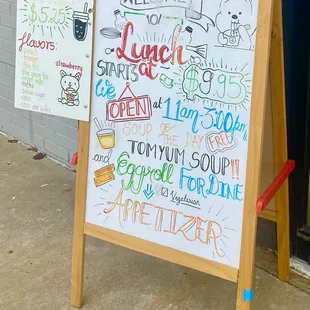 $5.25
Flavors:
strawberry
Welcome
Lunch
STARTS at $9.95
We OPEN at 11am-5:00pm
SOUP OF THE DAY FREE
TOMYUM SOUP!!
and Eggroll For DINE
Vegetarian
APPETIZER